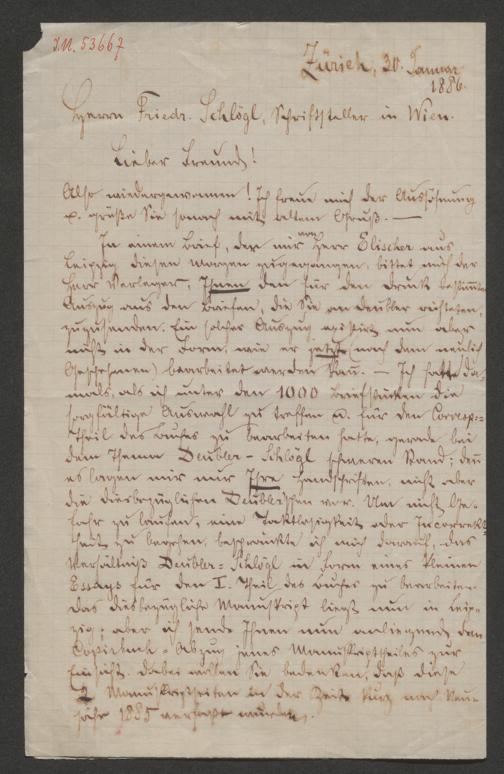 I.N. 53667
Zürich, 30. Januar
1886.
Herrn Friedr. Schlögl, Schriftsteller in Wien.
Lieber Freund!
Also wiedergewonnen! Ich freue mich der Aussöhnung
u. grüße Sie sonach mit altem Gruß. —
In einem Brief, der mir von Herr Elischer aus
Leipzig diesen Morgen zugegangen, bittet mich der
Herr Verleger, Ihnen den für den Druck bestimmten
Auszug aus den Briefen, die Sie an Deubler richteten,
zuzusenden. Ein solcher Auszug existirt nun aber
nicht in der Form, wie er jetzt (nach dem neulich
Geschehenen) bearbeitet werden kann. — Ich hatte da-
mals, als ich unter den 1000 Briefstücken die
sorgfältige Auswahl zu treffen u. für den Corresp.=
Theil des Buches zu bearbeiten hatte, gerade bei
dem Thema Deubler-Schlögl schweren Stand; denn
es lagen mir nur Ihre Handschriften, nicht aber
die diesbezüglichen Deubler'schen vor. Um nicht Ge-
fahr zu laufen, eine Taktlosigkeit oder Incorrekt-
heit zu begehen, beschränkte ich mich darauf, das
Verhältniß Deubler=Schlögl in Form eines kleinen
Essays für den I. Theil des Buches zu bearbeiten.
Das diesbezügliche Manuskript liegt nun in Leip-
zig; aber ich sende Ihnen nun anliegend den
Copirbuch-Abzug jenes Manuskripttheiles zur
Einsicht. Dabei wollen Sie bedenken, daß diese
2 Manuskriptseiten in der Zeit kurz nach Neu-
jahr 1885 verfaßt wurden.